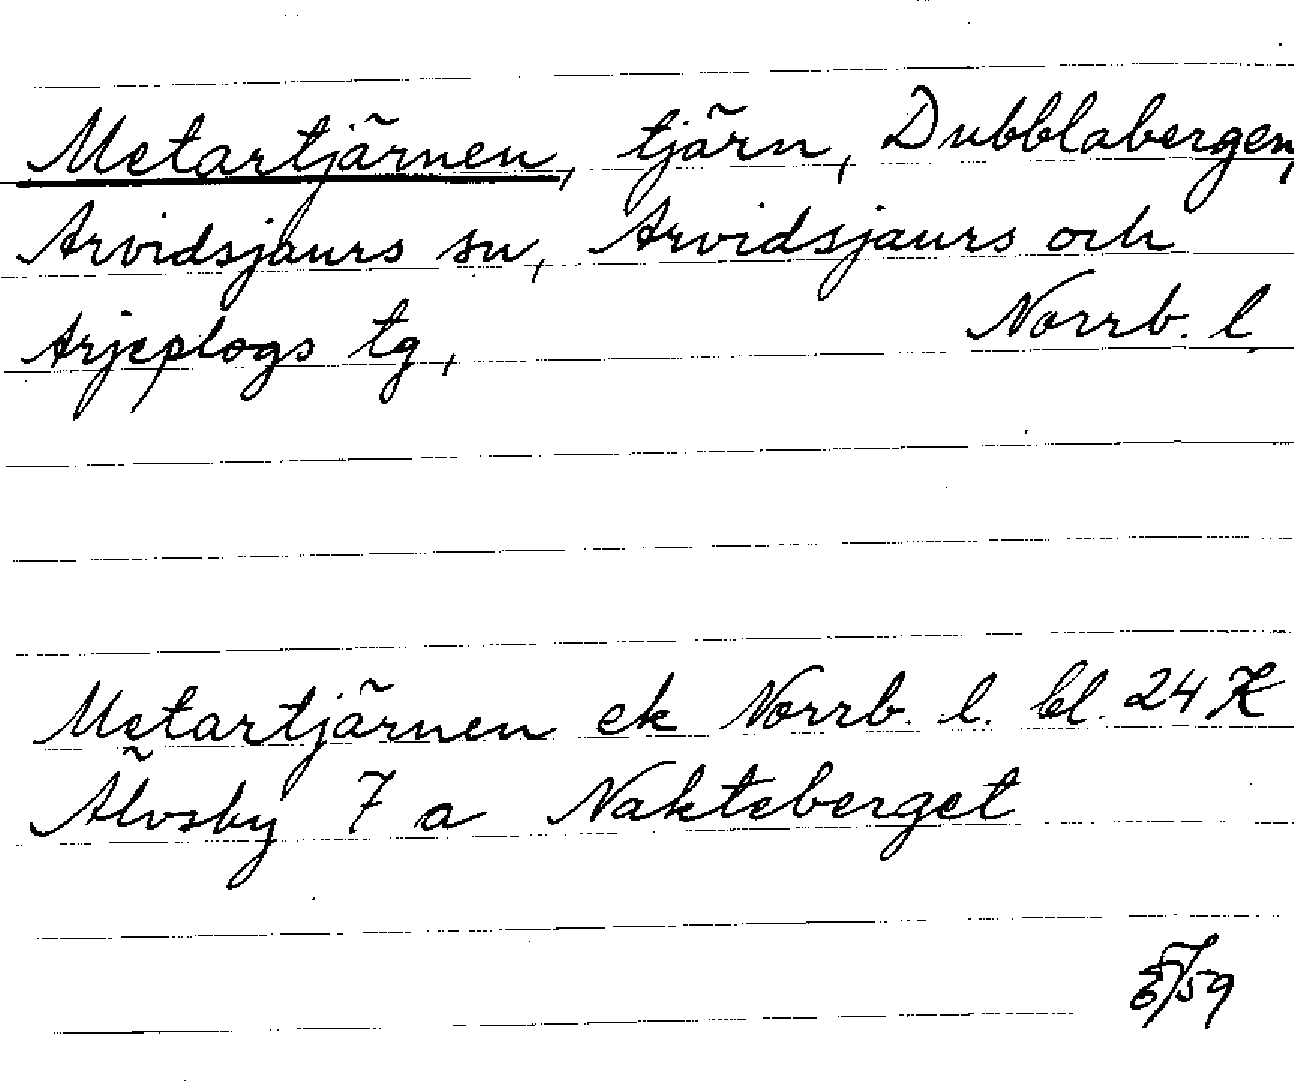 Metartjärnen, tjärn, Dubblabergen,
Arvidsjaurs sn, Arvidsjaurs och
Arjeplogs tg, Norrb. l.
Metartjärnen ek Norrb. l. bl. 24 K
Älvsby 7 a Nakteberget